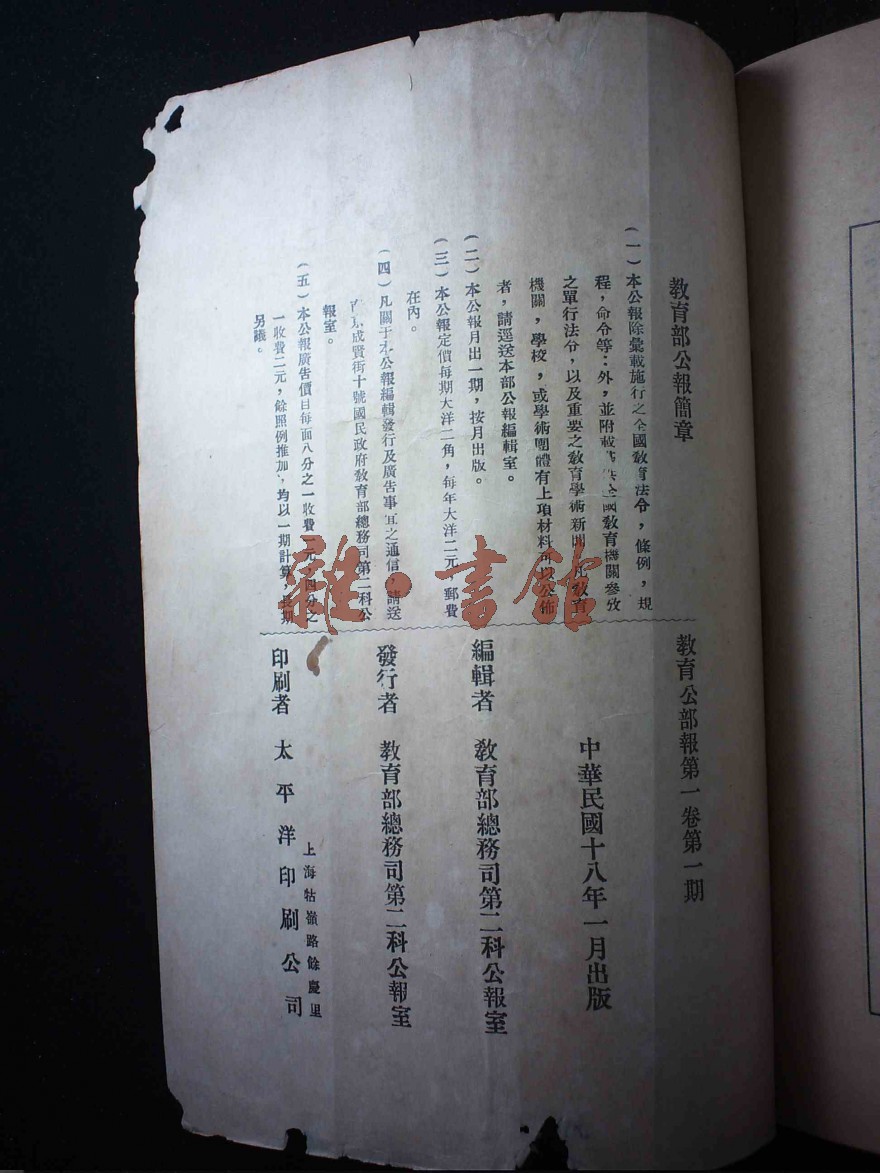 教育部公報簡章
(一)本公報除彙載施行之全國敎育法令，條例，規
程，命令等；外，並附載 全國敎育機關參攷
之單行法令，以及重要之敎育學術新聞 凡敎育
機關，學校，或學術團體有上項材料可以公佈
者，請逕送本部公報編輯室。
(二)本公報月出一期，按月出版。
(三)本公報定價每期大洋二角，每年大洋二元，郵費
在內。
(四)凡關于本公報編輯發行及廣告事宜之通信，請送
南京成賢街十號國民政府敎育部總務司第二科公
報室。
(五)本公報廣告價目每面八分之一收費一元，四分之
一收費二元，餘照例推加，均以一期計算，長期
另議。
教育公部報第一卷第一期
中華民國十八年一月出版
編輯者 敎育部總務司第二科公報室
發行者 敎育部總務司第二科公報室
上海牯嶺路餘慶里
印刷者 太平洋印刷公司
雜·書館